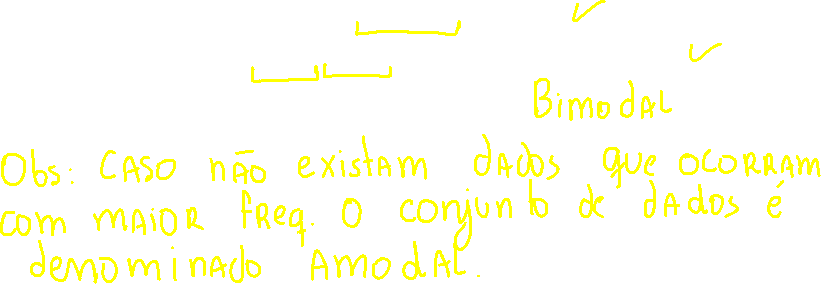 Bimodal
Obs: Caso não existam dados que ocorram
com maior freq. o conjunto de dados é
denominado Amodal.